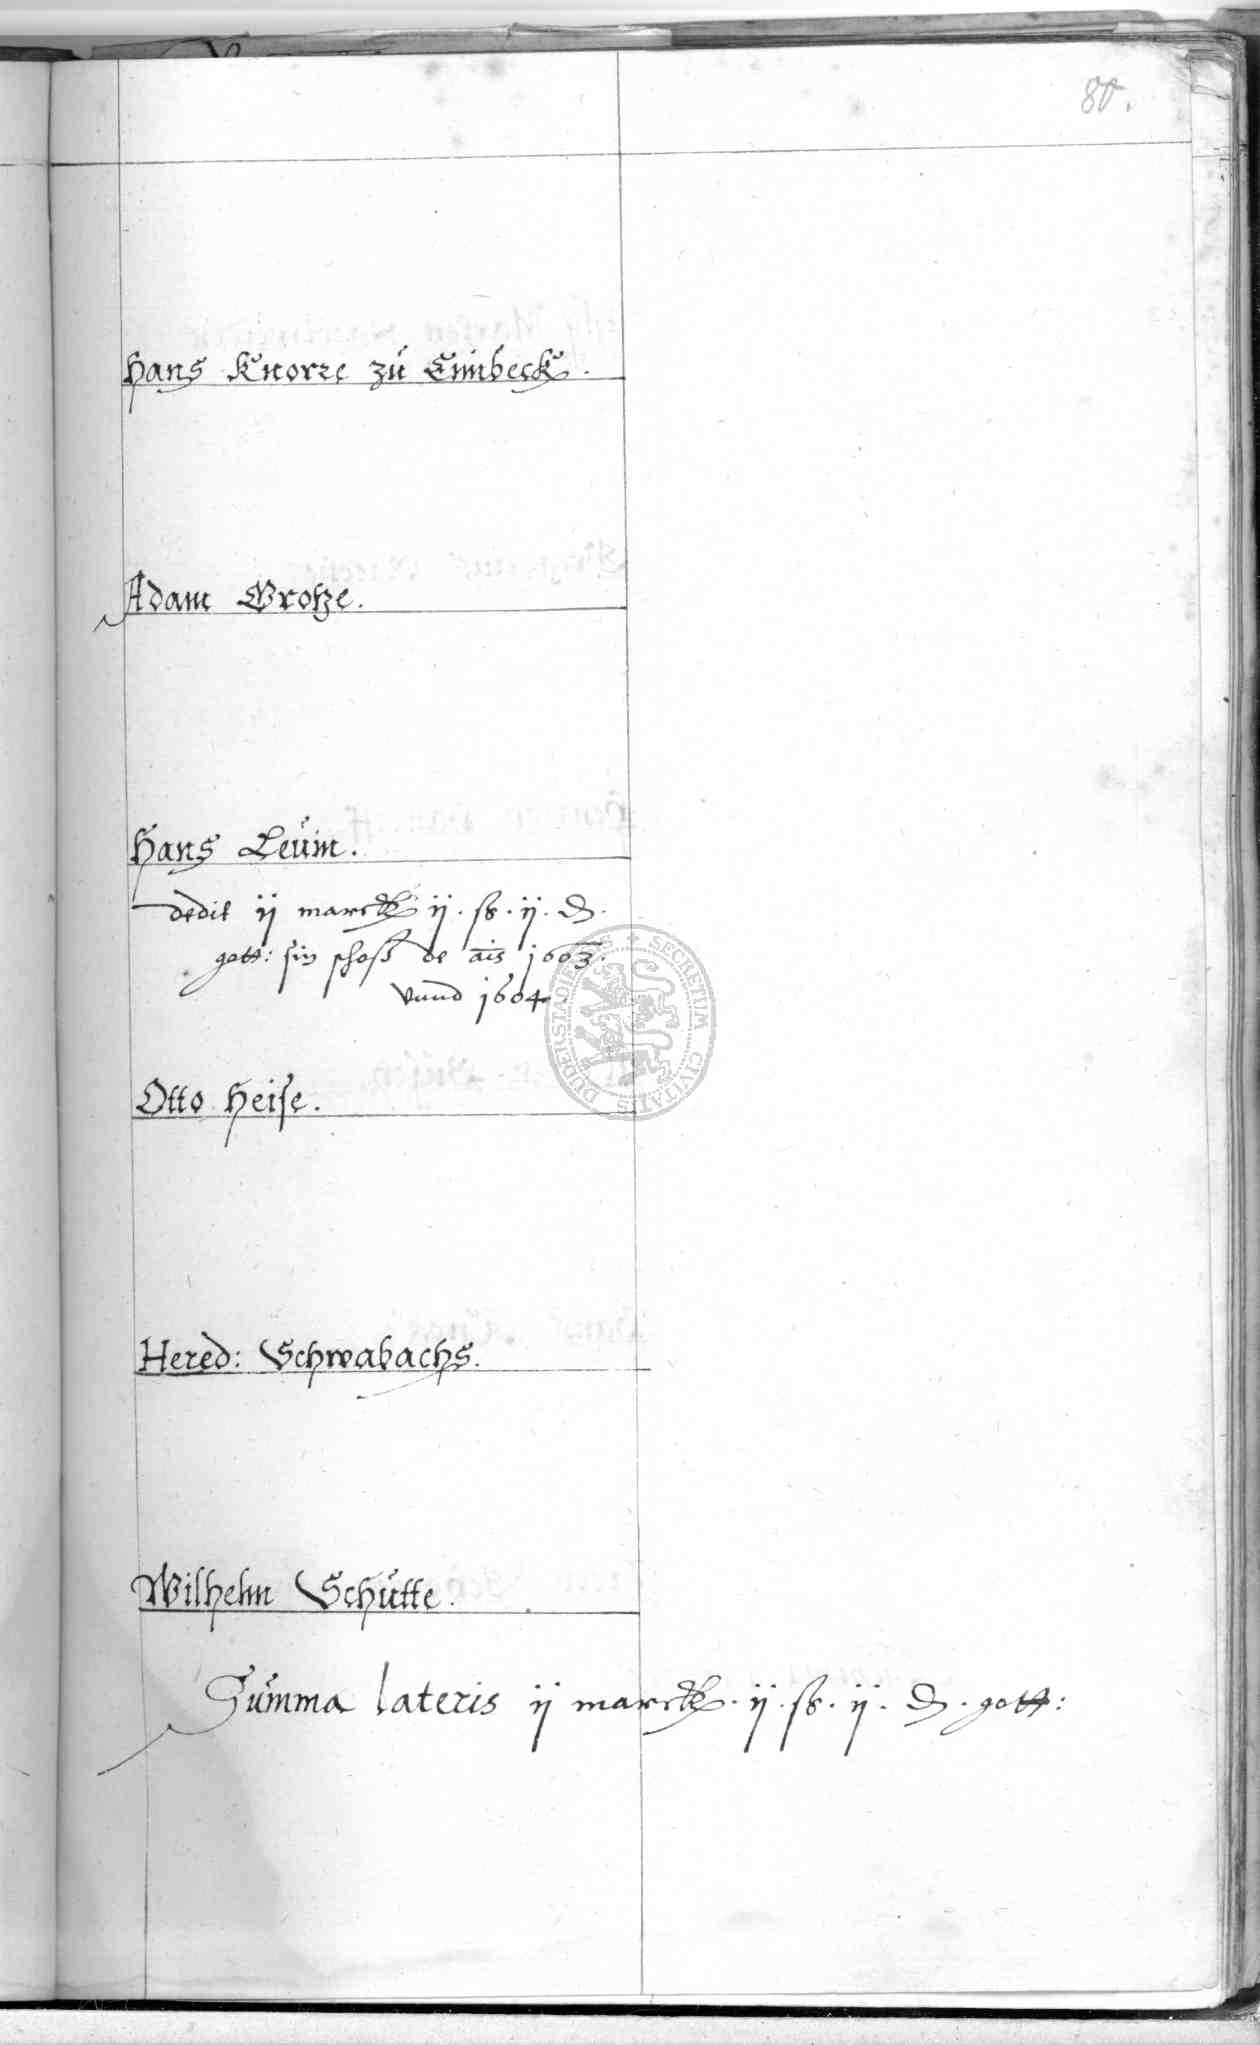 80.
Hans Knorre zú Eimbeck.
Adam Grosze.
Hans Leúin.
dedit ij marck ij. ß. ij. d.
gott: sin schoß de ais 1603.
vnnd 1604.
DUDERSTADIENSIS SECRETUM CIVITALIS
Otto Heise.
Hered: Schwabachs.
Wilhelm Schútte.
Súmma lateris ij marck. ij. ß. ij. d. gott: